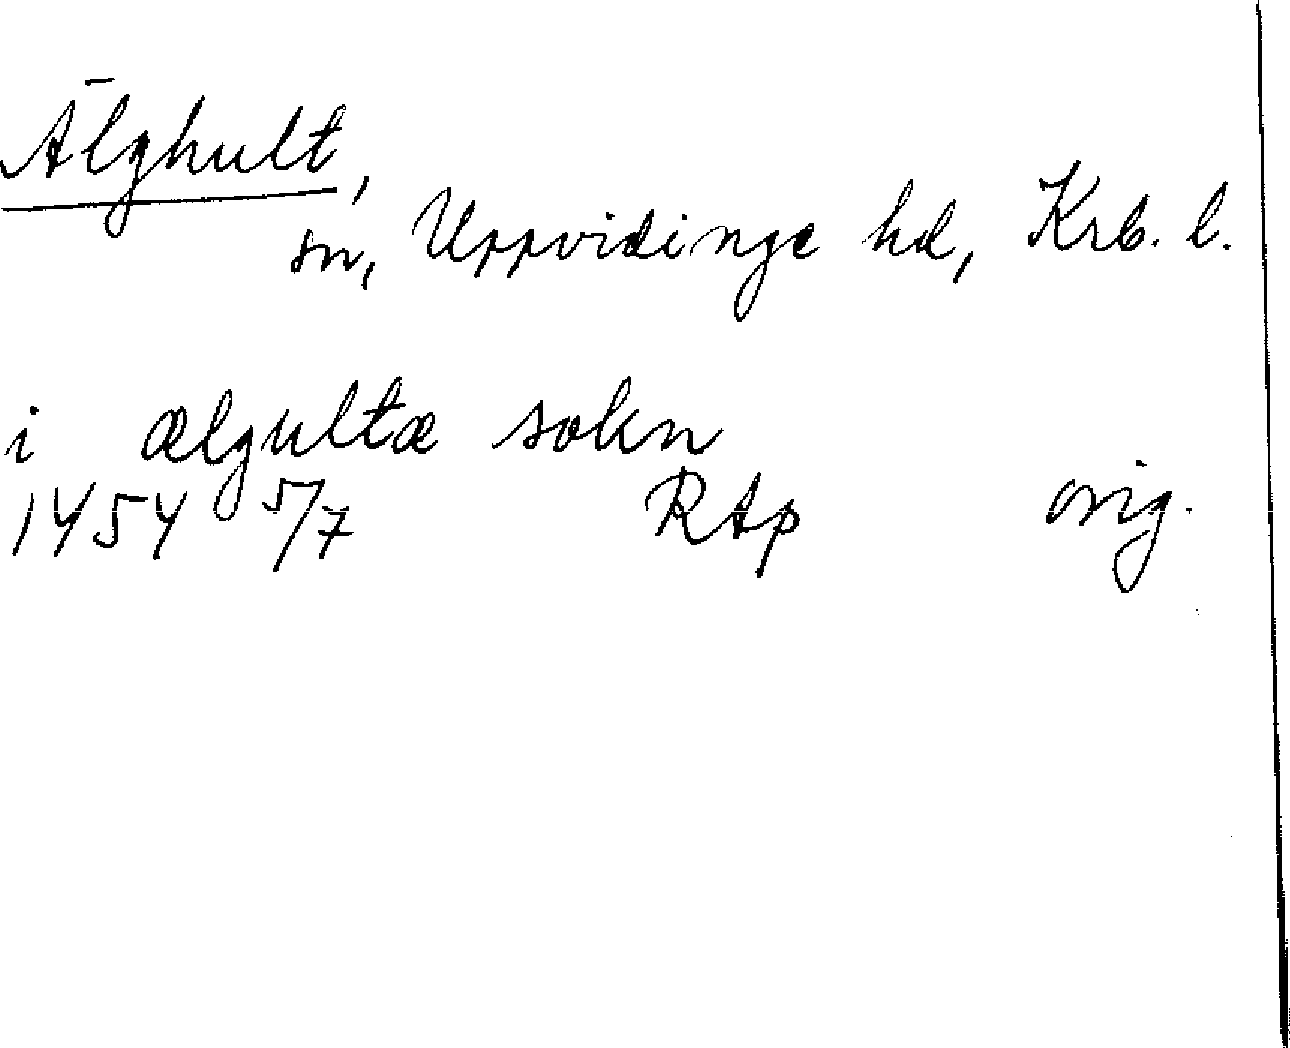 Älghult,
sn, Uppvidinge hd, Krb. l.
i ælgultæ sokn
1454 5/7 RAp orig.